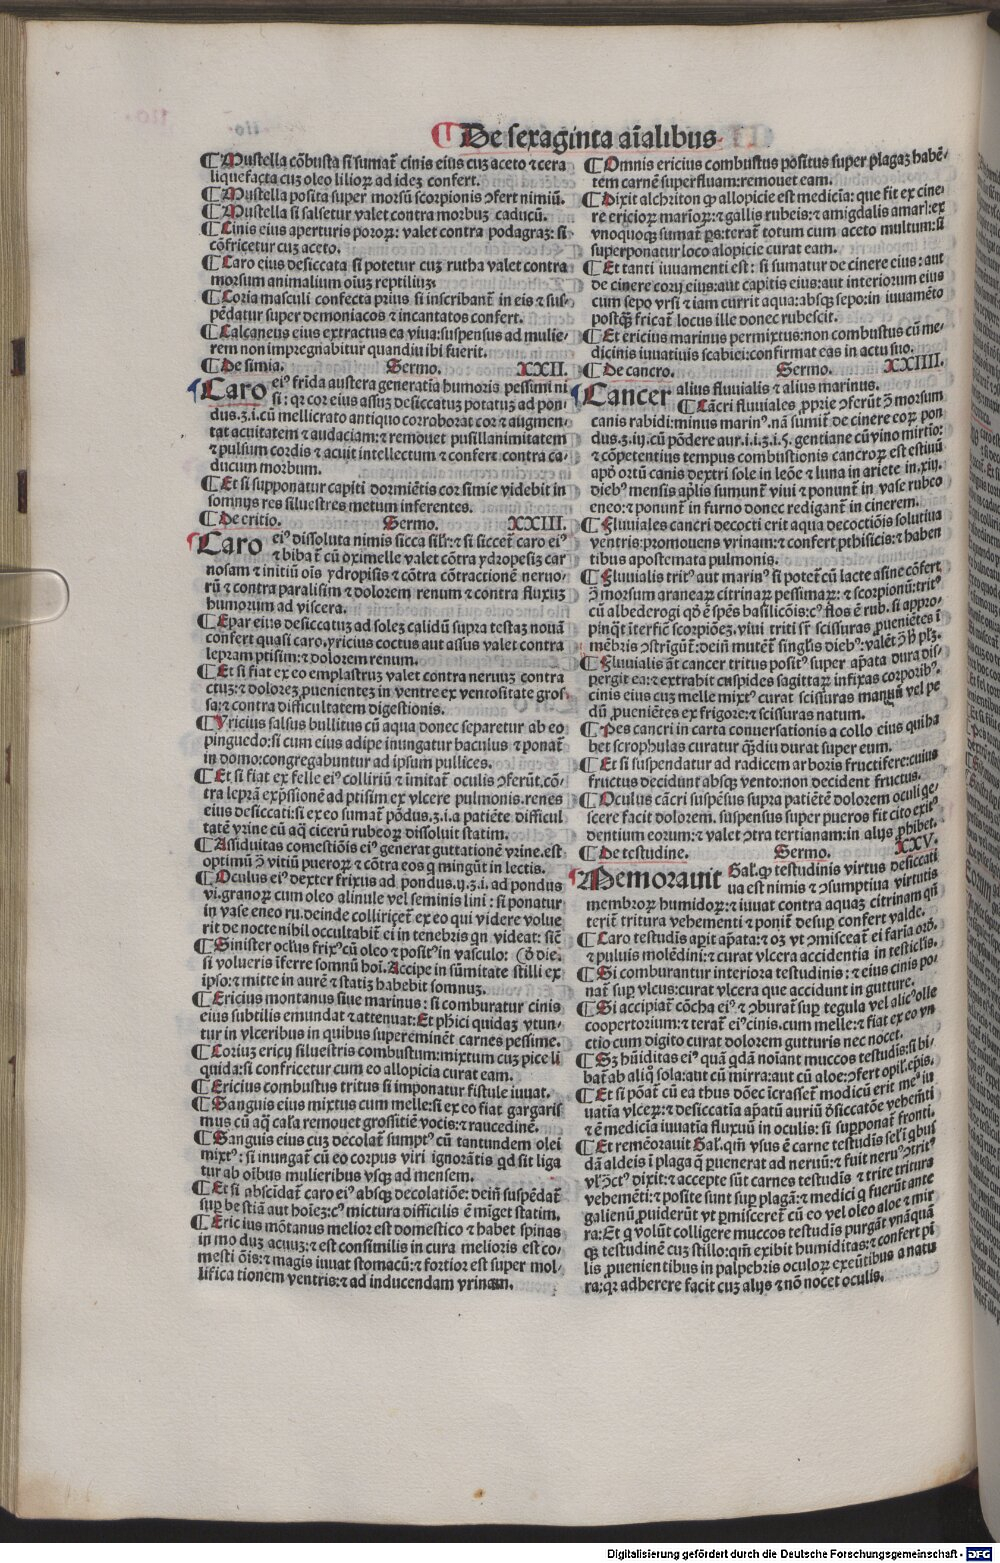 De sexaginta aīalibus
Mustella cōbusta si sumat̄ cinis eius cuȝ aceto ⁊ cera
liquefacta cuȝ oleo lilioꝝ ad ideȝ confert.
Mustella posita super morsū scorpionis ↄfert nimiū.
Mustella si salsetur valet contra morbuȝ caducū.
Cinis eius aperturis poroꝝ: valet contra podagraȝ: si
cōfricetur cuȝ aceto.
Caro eius desiccata si potetur cuȝ rutha valet contra
morsum animalium oīuȝ reptiliuȝ.
Coria masculi confecta prius si inscribant̄ in eis ⁊ sus-
pēdatur super demoniacos ⁊ incantatos confert.
Calcaneus eius extractus ea viua: suspensus ad mulie-
rem non impregnabitur quandiu ibi fuerit.
De simia. Sermo. XXII.
Caro eiꝰ frīda austera generatīa humoris pessimi ni
si: qꝛ cor eius assuȝ desiccatuȝ potatuȝ ad pon-
dus.ʒ.i.cū mellicrato antiquo corroborat cor ⁊ augmen-
tat acuitatem ⁊ audaciam: ⁊ remouet pusillanimitatem
⁊ pulsum cordis ⁊ acuit intellectum ⁊ confert contra ca-
ducum morbum.
Et si supponatur capiti dormiētis cor simie videbit in
somnijs res siluestres metum inferentes.
De eritio. Sermo. XXIII.
Caro eiꝰ dissoluta nimis sicca silr: ⁊ si siccet̄ caro eiꝰ
⁊ bibat̄ cū oximelle valet cōtra ydropesiȝ car
nosam ⁊ initiū oīs ydropisis ⁊ cōtra cōtractionē neruo-
rū ⁊ contra paralisim ⁊ dolorem renum ⁊ contra fluxuȝ
humorum ad viscera.
Epar eius desiccatuȝ ad soleȝ calidū supra testaȝ nouā
confert quasi caro. yricius coctus aut assus valet contra
lepram ptisim: ⁊ dolorem renum.
Et si fiat ex eo emplastruȝ valet contra neruuȝ contra
ctuȝ: ⁊ doloreȝ ꝓuenienteȝ in ventre ex ventositate gros-
sa: ⁊ contra difficultatem digestionis.
Yricius salsus bullitus cū aqua donec separetur ab eo
pinguedo: si cum eius adipe inungatur baculus ⁊ ponat̄
in domo: congregabuntur ad ipsum pullices.
Et si fiat ex felle eiꝰ colliriū ⁊ īmitat̄ oculis ↄferūt. cō-
tra leprā exp̄ssionē ad ptisim. ex vlcere pulmonis. renes
eius desiccati: si ex eo sumat̄ pōdus.ʒ.i.a patiēte difficul
tatē vrine cū aq̄ cicerū rubeoꝝ dissoluit statim.
Assiduitas comestiōis eiꝰ generat guttationē vrine. est
optimū ꝯ vitiū pueroꝝ ⁊ cōtra eos q̄ mingūt in lectis.
Oculus eiꝰ dexter frixus ad pondus.ij.ʒ.i. ad pondus
vi. granoꝝ cum oleo alinule vel seminis lini: si ponatur
in vase eneo ru. deinde colliriȩet̄ ex eo qui videre volue
rit de nocte nihil occultabit̄ ei in tenebris qn̄ videat: sic̄
Sinister oclꝰs frixꝰ cū oleo ⁊ positꝰ in vasculo: (ō die.
si volueris īferre somnū hoī. Accipe in sūmitate stilli ex
ipso: ⁊ mitte in aurē ⁊ statiȝ habebit somnuȝ.
Ericius montanus siue marinus: si comburatur cinis
eius subtilis emundat ⁊ attenuat: Et ph̄ici quidaȝ vtun-
tur in vlceribus in quibus supereminēt carnes pessime.
Coriuȝ ericij siluestris combustum: mixtum cuȝ pice li
quida: si confricetur cum eo allopicia curat eam.
Ericius combustus tritus si imponatur fistule iuuat.
Sanguis eius mixtus cum melle: si ex eo fiat gargaris
mus cū aq̄ cal̄a remouet grossitiē vocis: ⁊ raucedinē.
Sanguis eius cuȝ decolat̄ sumptꝰ cū tantundem olei
mixtꝰ: si inungat̄ cū eo corpus viri ignorātis qd̄ sit liga
tur ab oībus mulieribus vsqȝ ad mensem.
Et si abscīdat̄ caro eiꝰ absqȝ decolatiōe: dein̄ suspēdat̄
sup̄ bestiā aut hoīeȝ: cꝰ mictura difficilis ē miget statim.
Ericius mōtanus melior est domestico ⁊ habet spinas
in mo duȝ acuuȝ: ⁊ est consimilis in cura melioris est co-
mesti ōis: ⁊ magis iuuat stomacū: ⁊ fortior est super mol-
lifica tionem ventris: ⁊ ad inducendam vrinam.
Omnis ericius combustus positus super plagaȝ habē-
tem carnē superfluam: remouet eam.
Dixit alchriton ꝙ allopicie est medicīa: que fit ex cine-
re ericioꝝ marioꝝ: ⁊ gallis rubeis: ⁊ amigdalis amarl: ex
vnoquoqȝ sumat̄ ꝑs: terat̄ totum cum aceto multum: si
superponatur loco alopicie curat eam.
Et tanti iuuamenti est: si sumatur de cinere eius: aut
de cinere corij eius: aut capitis eius: aut interiorum eius
cum sepo vrsi ⁊ iam currit aqua: absqȝ sepo: in iuuamēto
postqȝ fricat̄ locus ille donec rubescit.
Et ericius marinus permixtus: non combustus cū me-
dicinis iuuatiuis scabiei: confirmat eas in actu suo.
De cancro. Sermo. XXIIII.
Cancer alius fluuialis ⁊ alius marinus.
Cācri fluuiales ꝓprie ↄferūt ꝯ morsum
canis rabidi: minus marinꝰ. nā sumit̄ de cinere coꝝ pon
dus.ʒ.iij. cū pōdere aur.i.i.ʒ.i.ȝ. gentiane cū vino mirtio:
⁊ cōpetentius tempus combustionis cancroꝝ est estiuū
apō ortū canis dextri sole in leōe ⁊ luna in ariete in.xiij.
diebꝰ mensis ap̄lis sumunt̄ viui ⁊ ponunt̄ in vase rubeo
eneo: ⁊ ponunt̄ in furno donec redigant̄ in cinerem.
Fluuiales cancri decocti erit aqua decoctiōis solutiua
ventris: promouens vrinam: ⁊ confert pthisicis: ⁊ haben
tibus apostemata pulmonis.
Fluuialis tritꝰ aut marinꝰ si potet̄ cū lacte asine cōfert
ꝯ morsum araneaꝝ citrinaꝝ pessimaꝝ: ⁊ scorpionū: tritꝰ
cū albederogi qd̄ ē sp̄es basilicōis: cꝰ flos ē rub. si appro-
pinqt̄ īterfic̄ scorpiōeȝ. viui triti sr̄ scissuras ꝓueniētes ī
mēbris ↄstrīgūt: dein̄ mutet̄ singlis diebꝰ: valet ꝯ ꝟ plȝ.
Fluuialis aūt cancer tritus positꝰ super ap̄ata dura dis-
pergit ea: ⁊ extrahit cuspides sagittaꝝ infixas corporibꝰ.
cinis eius cuȝ melle mixtꝰ curat scissuras manuū vel pe
dū ꝓueniētes ex frigore: ⁊ scissuras natum.
Pes cancri in carta conuersationis a collo eius quiha
bet scrophulas curatur qȝdiu durat super eum.
Et si suspendatur ad radicem arboris fructifere: cuius
fructus decidunt absqȝ vento: non decident fructus.
Oculus cācri suspēsus supra patiētē dolorem oculi qe-
scere facit dolorem. suspensus super pueros fit cito exitꝰ
dentium eorum: ⁊ valet ↄtra tertianam: in alijs ꝓhibet.
De testudine. Sermo. XXV.
Memorauit Gal. ꝙ testudinis virtus desiccati
ua est nimis ⁊ ↄsumptiua virtutis
membroꝝ humidoꝝ: ⁊ iuuat contra aquaȝ citrinam qn̄
terit̄ tritura vehementi ⁊ ponit̄ desuꝑ confert valde.
Caro testudis aꝑit ap̄ata: ⁊ oȝ vt ↄmisceat̄ ei faria orō.
⁊ puluis molēdini: ⁊ curat vlcera accidentia in testiclis.
Si comburantur interiora testudinis: ⁊ eius cinis po-
nat̄ suꝑ vlcus: curat vlcera que accidunt in gutture.
Si accipiat̄ cōcha eiꝰ ⁊ ↄburat̄ suꝑ tegula vel alicꝰ olle
coopertorium: ⁊ terat̄ eiꝰ cinis. cum melle: ⁊ fiat ex eo vn
ctio cum digito curat dolorem gutturis nec nocet.
Sȝ hūiditas eiꝰ quā qdā noīant muccos testudis: si bi-
bat̄ ab aliq̄ sola: aut cū mirra: aut cū aloe: ↄfert opil. ep̄is.
Et si pōat̄ cū ea thus dōec īcrasset̄ modicū erit meꝰ iu
uatīa vlceꝝ: ⁊ desiccatīa ap̄atū auriū ōsiccatōe vehem̄ti
⁊ ē medicīa iuuatīa fluxuū in oculis: si supponat̄ fronti.
Et remēorauit Gal. qm̄ vsus ē carne testudīs sel'ī qbusꝰ
dā aldeis ī plaga q̄ ꝑuenerat ad neruū: ⁊ fuit neruꝰ ↄtritꝰ
vl' ↄctꝰ dixit: ⁊ accepte sūt carnes testudīs ⁊ trite tritura
vehemēti: ⁊ posite sunt suꝑ plagā: ⁊ medici q̄ fuerūt ante
galienū ꝓuiderūt vt ꝑmiscerent̄ cū eo vel oleo aloe ⁊ mir
ra: Et q̄ volūt colligere muccos testudīs purgāt vnāquā
qȝ testudinē cuȝ stillo: qm̄ exibit humiditas: ⁊ confert pi
lis ꝓuenientibus in palpebris oculoꝝ exeūtibus a natu
ra: qꝛ adherere facit cuȝ alijs ⁊ nō nocet oculis.
Digitalisierung gefördert durch die Deutsche Forschungsgemeinschaft - DFG